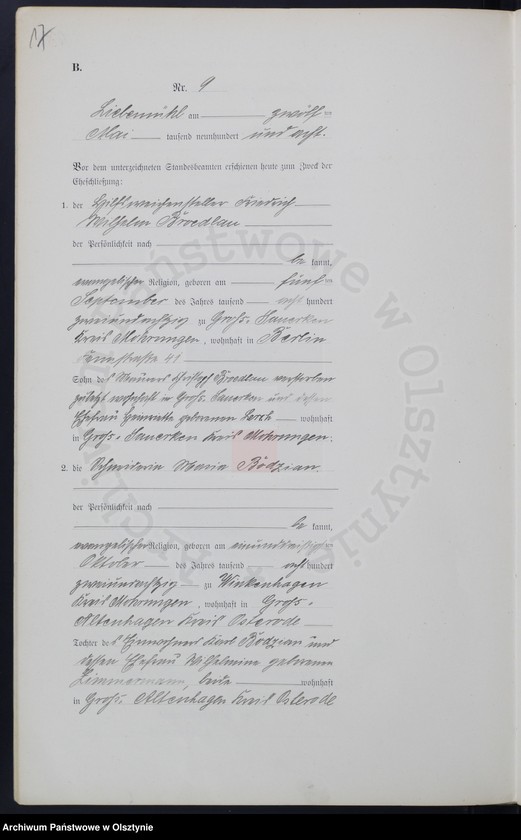 17
B.
Nr. 9
Liebemühl am zwölf-
Mai tausend neunhundert und acht.
Vor dem unterzeichneten Standesbeamten erschienen heute zum Zweck der
Eheschließung:
1. der Hilfsweichensteller Friedrich
Wilhelm Broedlau
der Persönlichkeit nach
be kannt,
evangelischer Religion, geboren am fünf-
September des Jahres tausend acht hundert
zweiundachtzig zu Groß-Sauerken
Kreis Mohrungen, wohnhaft in Berlin
straße 41
Sohn des Broedlau verstorben
zuletzt wohnhaft in Groß-Sauerken und dessen
Ehefrau Henriette geborenen wohnhaft
in Groß-Sauerken Kreis Mohrungen.
2. die Schneiderin Maria Bodzian.
der Persönlichkeit nach
be kannt,
evangelischer Religion, geboren am einunddreißigsten
Oktober des Jahres tausend acht hundert
zweiundachtzig zu Winkenhagen
Kreis Mohrungen, wohnhaft in Groß-
Altenhagen Kreis Osterode
Tochter des Einwohners Karl Bodzian und
dessen Ehefrau Wilhelmine geborenen
Zimmermann, beide wohnhaft
in Groß-Altenhagen Kreis Osterode
Archiwum Państwowe w Olsztynie
Archiwum Państwowe w Olsztynie